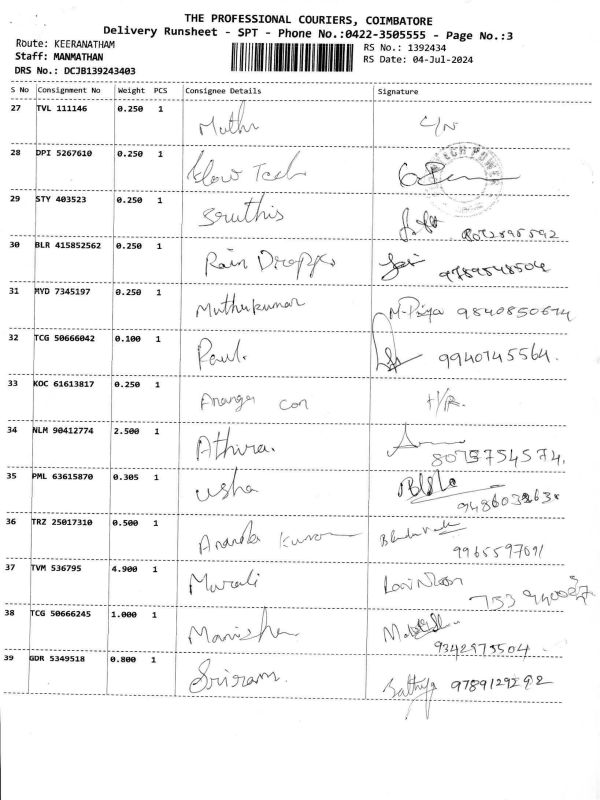 THE PROFESSIONAL COURIERS, COIMBATORE
Delivery Runsheet - SPT - Phone No.:0422-3505555 - Page No.:3
Route: KEERANATHAM
RS No.: 1392434
Staff: MANMATHAN
RS Date: 04-Jul-2024
DRS No.: DCJB139243403
S No Consignment No Weight PCS Consignee Details Signature
27 TVL 111146 0.250 1 Muthu
28 DPI 5267610 0.250 1 Tech
TECH POWER
29 STY 403523 0.250 1 Sruthis
30 BLR 415852562 0.250 1 Rain Dropps 9789548504
31 MYD 7345197 0.250 1 Muthukumar M-Priya 9840850674
32 TCG 50666042 0.100 1 Paul. 9940745564.
33 KOC 61613817 0.250 1 con
34 NLM 90412774 2.500 1 Athira. 8075754574.
35 PML 63615870 0.305 1 Usha
36 TRZ 25017310 0.500 1 Ananda Kumar 9965597091
37 TVM 536795 4.900 1 Murali
38 TCG 50666245 1.000 1 Manisha 9342975504
39 GDR 5349518 0.800 1 Sriram. Sathiya 9789129292